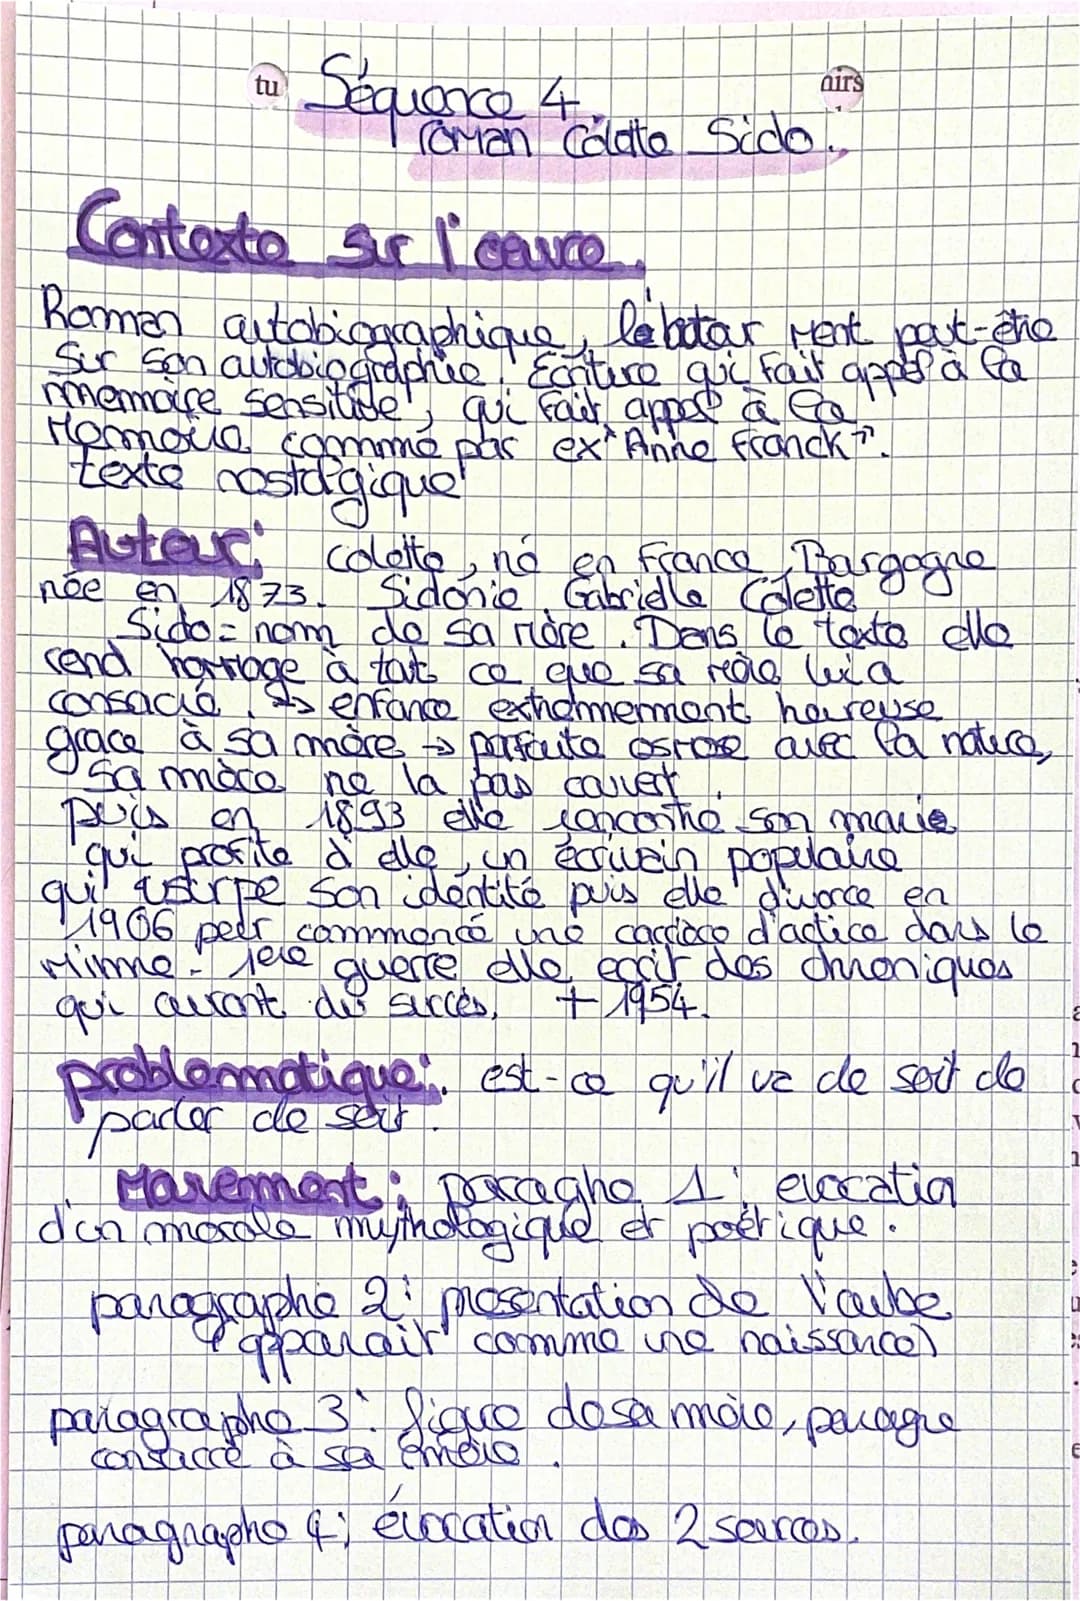 tu
nirs
Séquence 4
roman Colette Sido.
Contexte sur l'œuvre.
Roman autobiographique, ment peut-être
sur son autobiographie. Ecriture qui fait appel à la
mémoire sensitive, qui fait appel à la
Memoire comme par ex "Anne Franck".
texte nostalgique
Auteur: Colette, né en France, Bourgogne
née en 1873. Sidonie Gabrielle Colette
Sido = nom de sa mère. Dans le texte elle
rend hommage à tout ce que sa mère lui a
consacré. => enfance extremement heureuse
grace à sa mère → parfaite osmose avec la nature,
sa mère ne la pas couvert.
puis en 1893 elle rencontre son marie
qui profite d'elle, un écrivain populaire
qui usurpe son identité puis elle divorce en
1906 pour commencé une carrière d'actice dans le
mimme. 1ere guerre elle ecrit des chroniques
qui auront du succès. + 1954.
problemmatique: est-ce qu'il va de soit de
parler de soit.
Mouvement: paragphe 1: evocation
d'un morale mythologique et poétique.
paragraphe 2: presentation de l'aube
(apparait comme une naissance)
paragraphe 3: figure de sa mère, paragre
consacré à sa mère.
paragraphe 4: évocation des 2 sources.